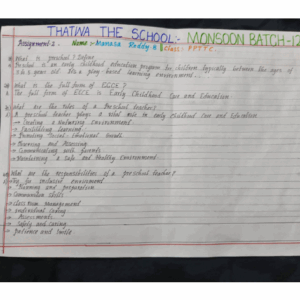 THATWA THE SCHOOL:- MONSOON BATCH-12
Assignment-2 Name:- Manasa Reddy.H Class: PPTTC.
What is preschool? Define
Preschool is an early childhood education program for children typically between the ages of
3 to 5 years old. It's a play based learning environment.
What is the full form of ECCE?
The full form of ECCE is Early Childhood Care and Education
What are the roles of a Pre-school teacher?
A preschool teacher plays a vital role in early childhood care and Education
Creating a Nurturing Environment
Facilitating Learning
Promoting Social-Emotional Growth
Observing and Assessing
Communicating with parents
Maintaining a Safe and Healthy environment
What are the responsibilities of a pre school teacher?
inclusive environment
Planning and preparation
Communication skills
Class Room Management
Individual
Assessments
Safety and caring
patience and